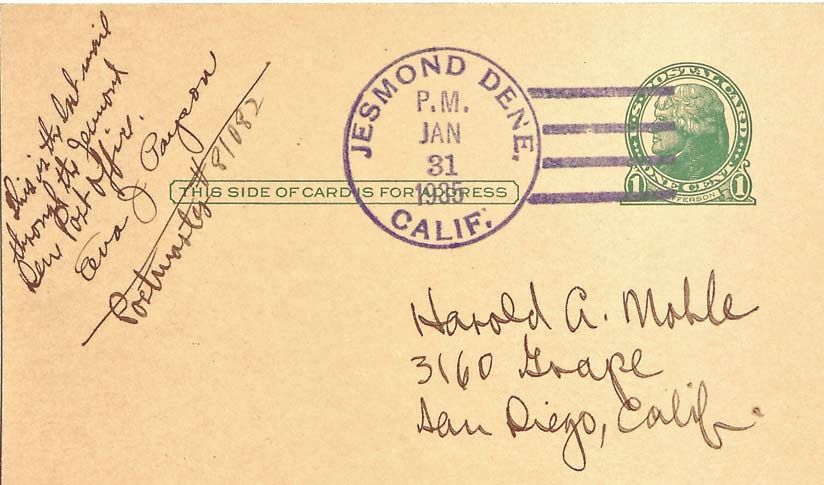 This is the last mail
through the Jesmond
Dene Post Office.
Eva J Payson
Postmaster # 81082
JESMOND DENE,
P.M.
JAN
31
1935
CALIF.
U.S. POSTAL CARD
ONE CENT
1 1
JEFFERSON
THIS SIDE OF CARD IS FOR ADDRESS
Harold A. Mohle
3160 Grape
San Diego, Calif.